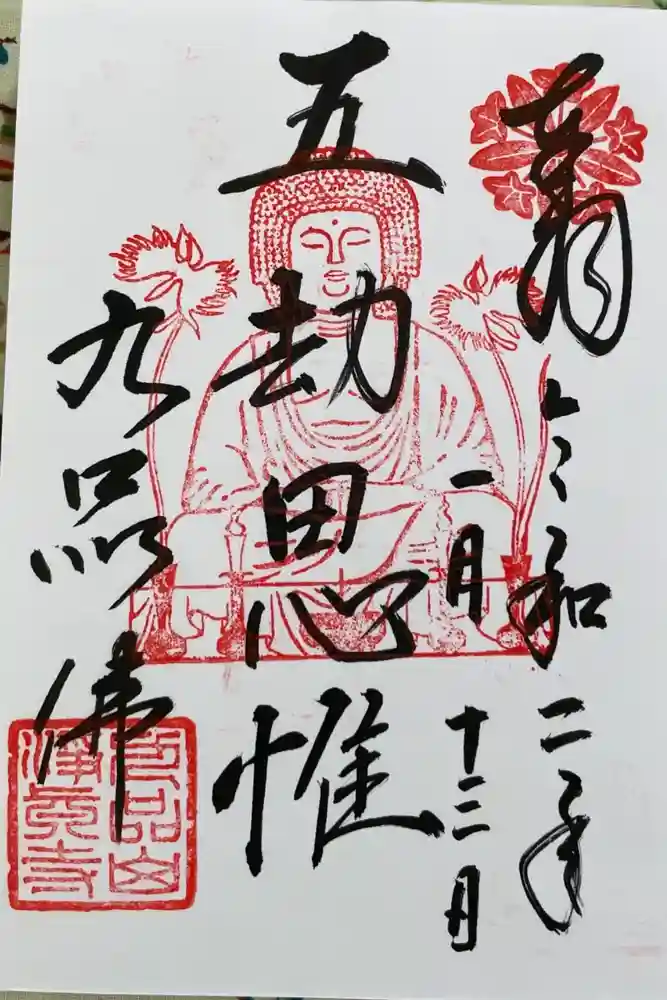 奉拝
令和二年
一月十三日
五劫思惟
九品佛
九品山
淨眞寺